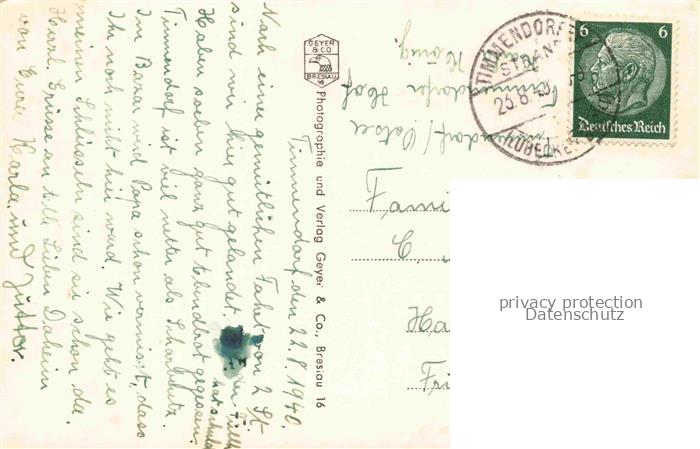 Timmendorf, den 22.8.1940.
Nach einer gemütlichen Fahrt von 2 St
sind wir hier gut gelandet.
Haben soeben ganz gut Abendbrot gegessen.
Timmendorf ist viel netter als Scharbeutz.
Im Bazar wird Papa schon vermisst, dass
Ihr noch nicht hier ward. Wie geht es
meinen Schlüsseln sind sie schon da.
Herzl. Grüsse an alle Lieben Daheim
von Eurer Karla und Jutta.
GEYER
& CO
BRESLAU
16
Photographie und Verlag Geyer & Co., Breslau 16
König.
Timmendorfer Hof
Ostsee
TIMMENDORFER
STRAND
23.8.
(LÜBECKER
6 6
Deutsches Reich
Fami
C.
Ha
Fri
privacy protection
Datenschutz